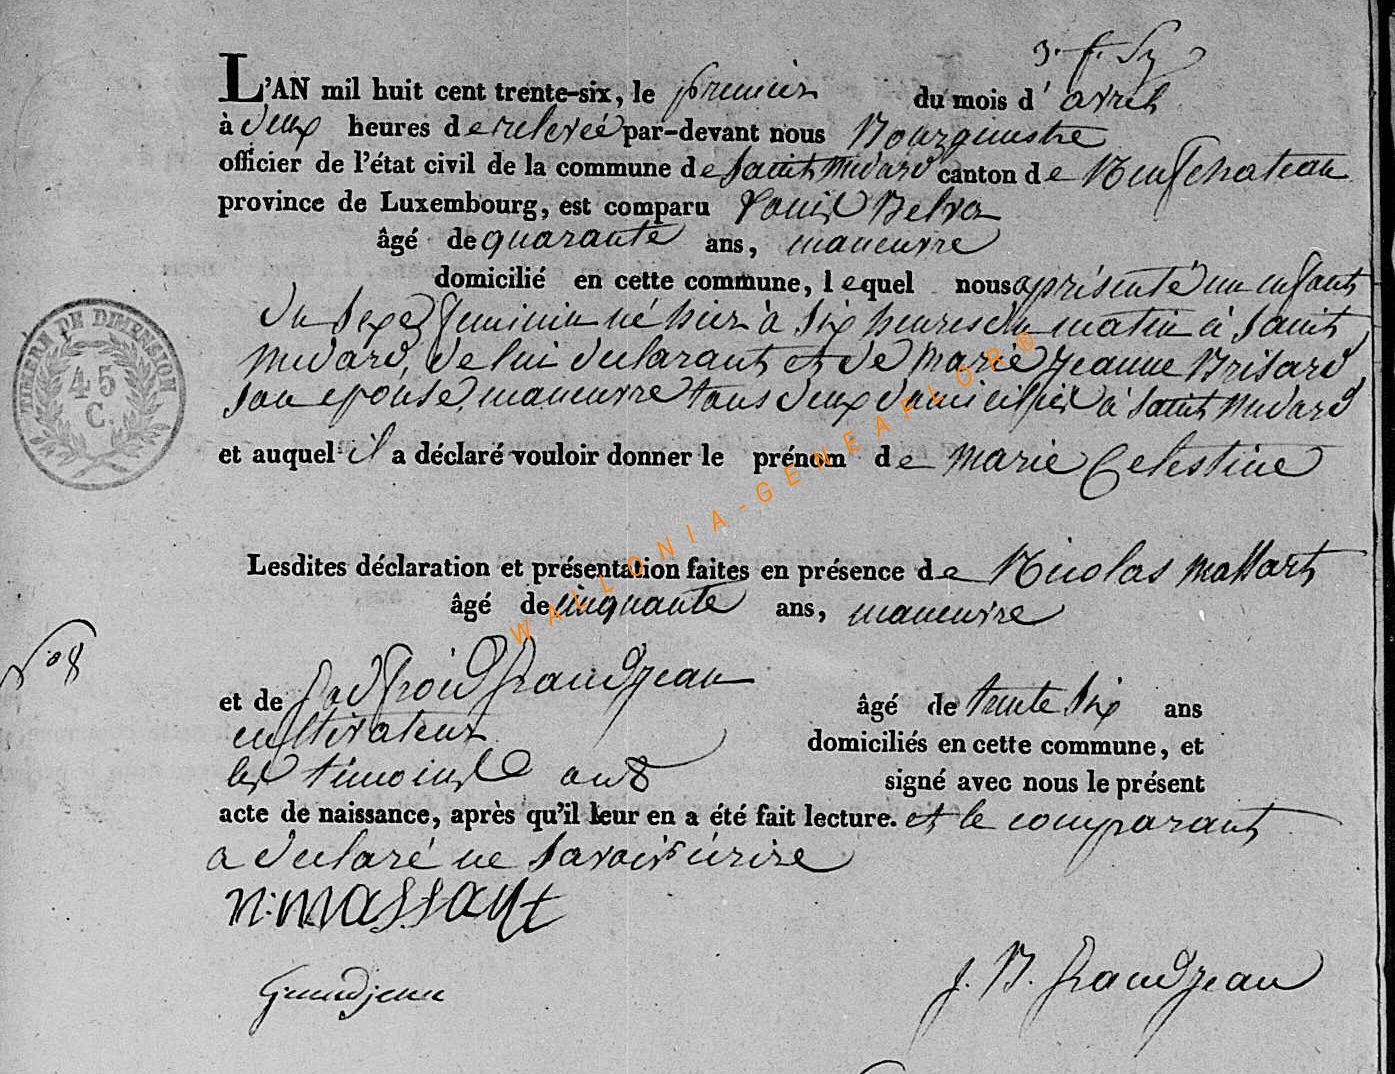 L'AN mil huit cent trente-six, le premier du mois d'avril
à deux heures de relevée par-devant nous Bourgmestre
officier de l'état civil de la commune de Saint Médard canton de Neufchateau
province de Luxembourg, est comparu Louis
âgé de quarante ans, maneuvre
domicilié en cette commune, lequel nous a présenté un enfant
du sexe feminin né hier à six heures du matin à Saint
Médard, de lui déclarant et de Marie Jeanne Brisard
son epouse, maneuvre tous deux domiciliés à Saint Médard
et auquel il a déclaré vouloir donner le prénom de Marie Celestine
Lesdites déclaration et présentation faites en présence de Nicolas Massart
âgé de cinquante ans, maneuvre
et de Grandjean âgé de trente six ans
cultivateur
domiciliés en cette commune, et
les témoins ont signé avec nous le présent
acte de naissance, après qu'il leur en a été fait lecture. et le comparant
a déclaré ne savoir écrire
N: Massart
Grandjean
J. B. Grandjean
N° 8
TIMBRE DE DIMENSION
45
C.
WALLONIA-GENEAFLOR®